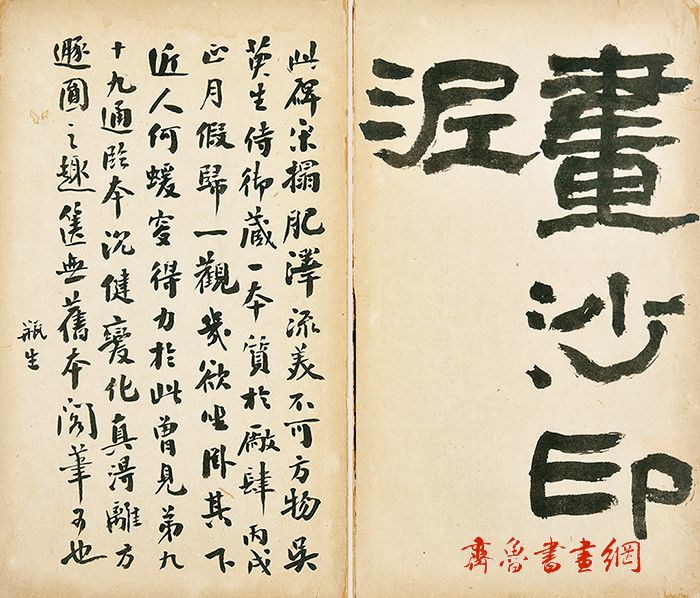 畫沙印
泥
此碑宋搨肥澤流美不可方物吳
荑生侍御藏一本質於廠肆丙戌
正月假歸一觀幾欲坐卧其下
近人何蝯叟得力於此曾見第九
十九通臨本沉健變化真淂離方
遯圓之趣篋無舊本閣筆可也
瓶生
齊魯書畫網